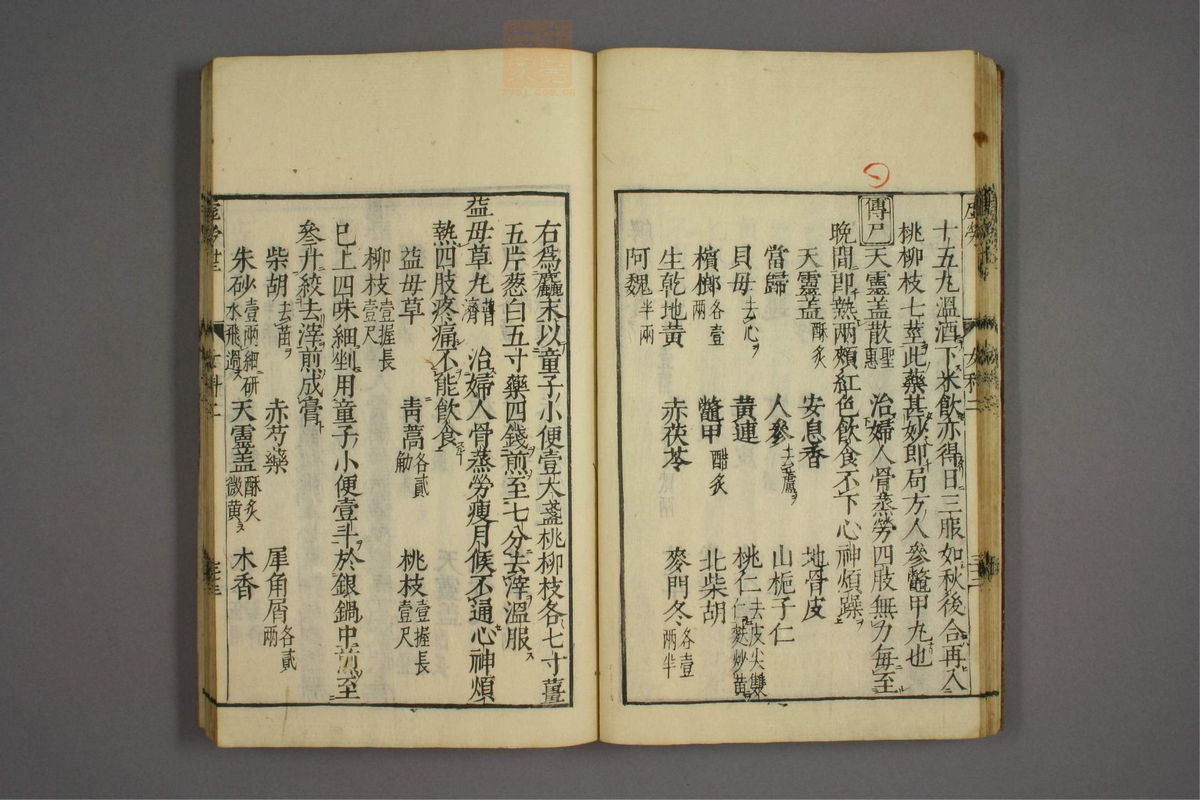 十五丸溫酒下米飲亦得日三服如秋後合再入
桃柳枝七莖此藥甚妙即局方人參鼈甲丸也
傳尸 天靈蓋散 聖惠 治婦人骨蒸勞四肢無力每至
晚間即熱兩頰紅色飲食不下心神煩躁
天靈蓋 酥炙 安息香 地骨皮
當歸 人參 去蘆 山梔子仁
貝母 去心 黃連 桃仁 去皮尖雙仁麩炒黃
檳榔 各壹兩 鼈甲 醋炙 北柴胡
生乾地黃 赤茯苓 麥門冬 各壹兩半
阿魏 半兩
右爲麤末以童子小便壹大盞桃柳枝各七寸薑
五片葱白五寸藥四錢煎至七八分去滓溫服
益母草丸 普濟 治婦人骨蒸勞瘦月候不通心神煩
熱四肢疼痛不能飲食
益母草 靑蒿 各貳觔 桃枝 壹握長壹尺
柳枝 壹握長壹尺
巳上四味細剉用童子小便壹斗於銀鍋中煎至
參升絞去滓煎成膏
柴胡 去苗 赤芍藥 犀角屑 各貳兩
朱砂 壹兩細研水飛過 天靈蓋 酥炙微黃 木香
女科二
女科二